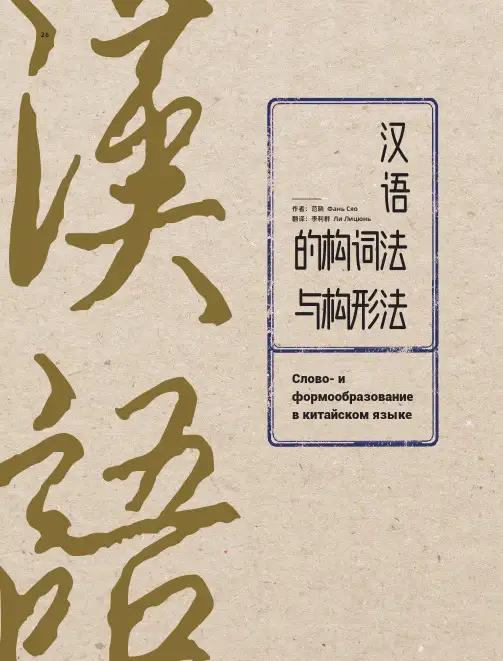 26
漢
語
汉
语
作者：范晓 Фань Сяо
翻译：李利群 Ли Лицюнь
的构词法
与构形法
Слово- и
формообразование
в китайском языке